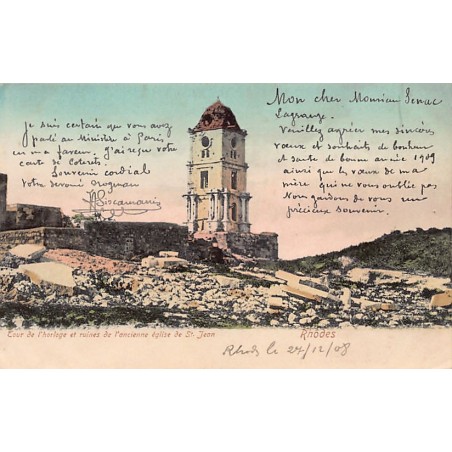 Mon cher Monsieur Senac
Lagrange.
Veuillez agréer mes sincères
vœux et souhaits de bonheur
et santé de bonne année 1909
ainsi que les vœux de ma
mère qui ne vous oublie pas
Nous gardons de vous un
précieux souvenir.
je suis certain que vous avez
parlé au Ministère à Paris
en ma faveur. J'ai reçu votre
carte de
Souvenir cordial
Votre dévoué
Tour de l'horloge et ruines de l'ancienne église de St-Jean
Rhodes
Rhodes le 27/12/08